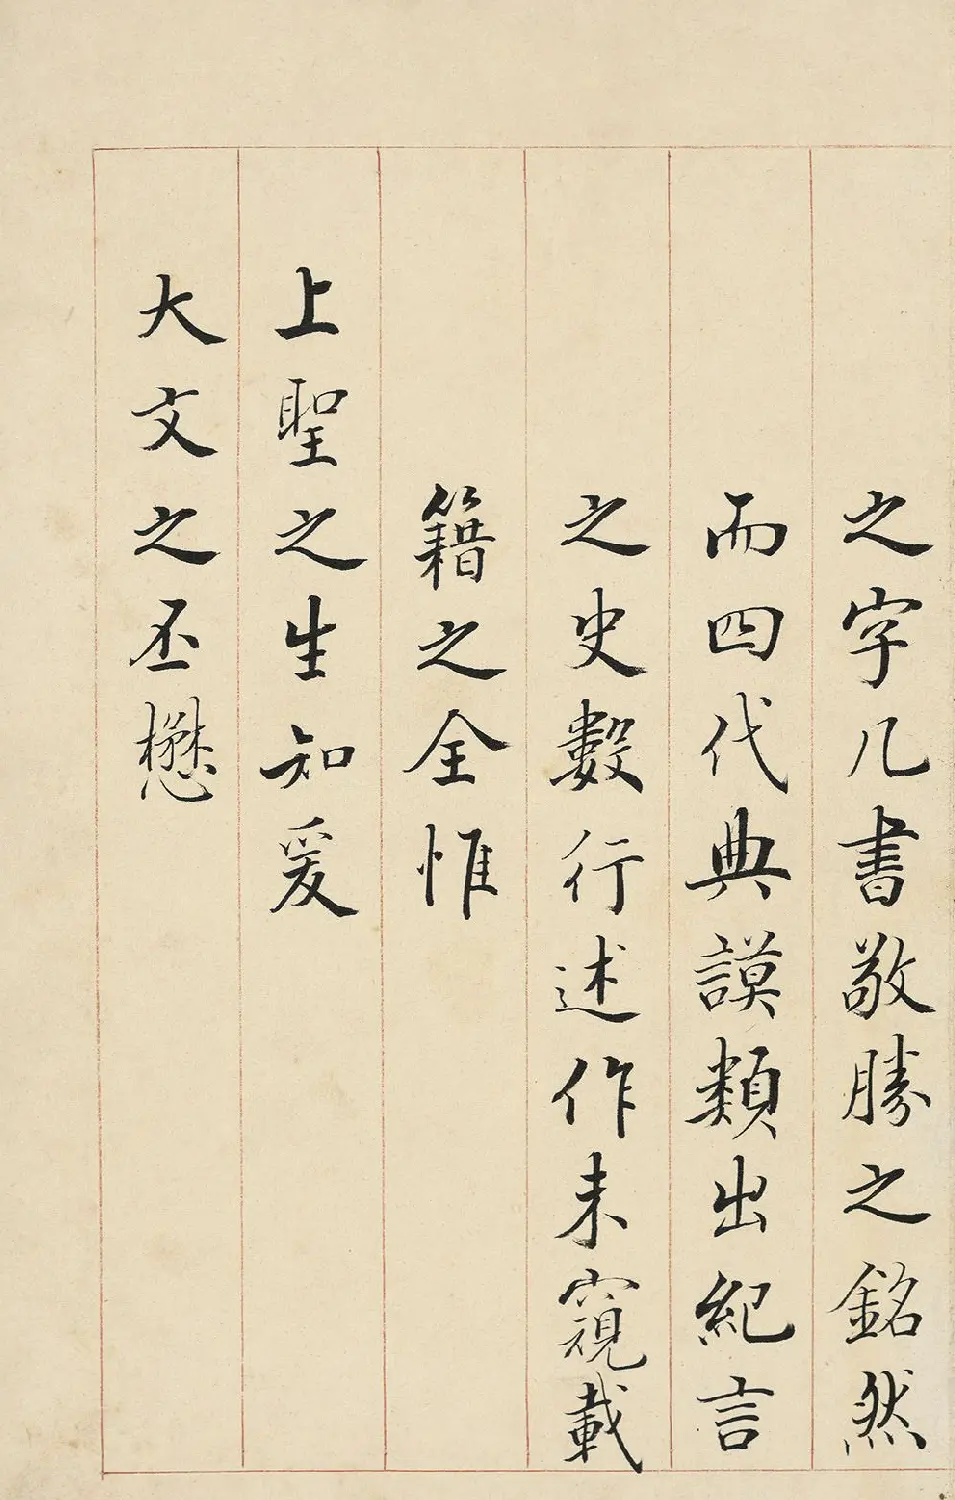 之字几書敬勝之銘然
而四代典謨類出紀言
之史數行述作未窺載
籍之全惟
上聖之生知爰
大文之丕懋